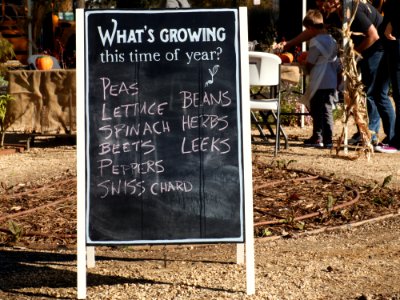 What's Growing
this time of year?
Peas
Lettuce Beans
Spinach Herbs
Beets Leeks
Peppers
Swiss chard